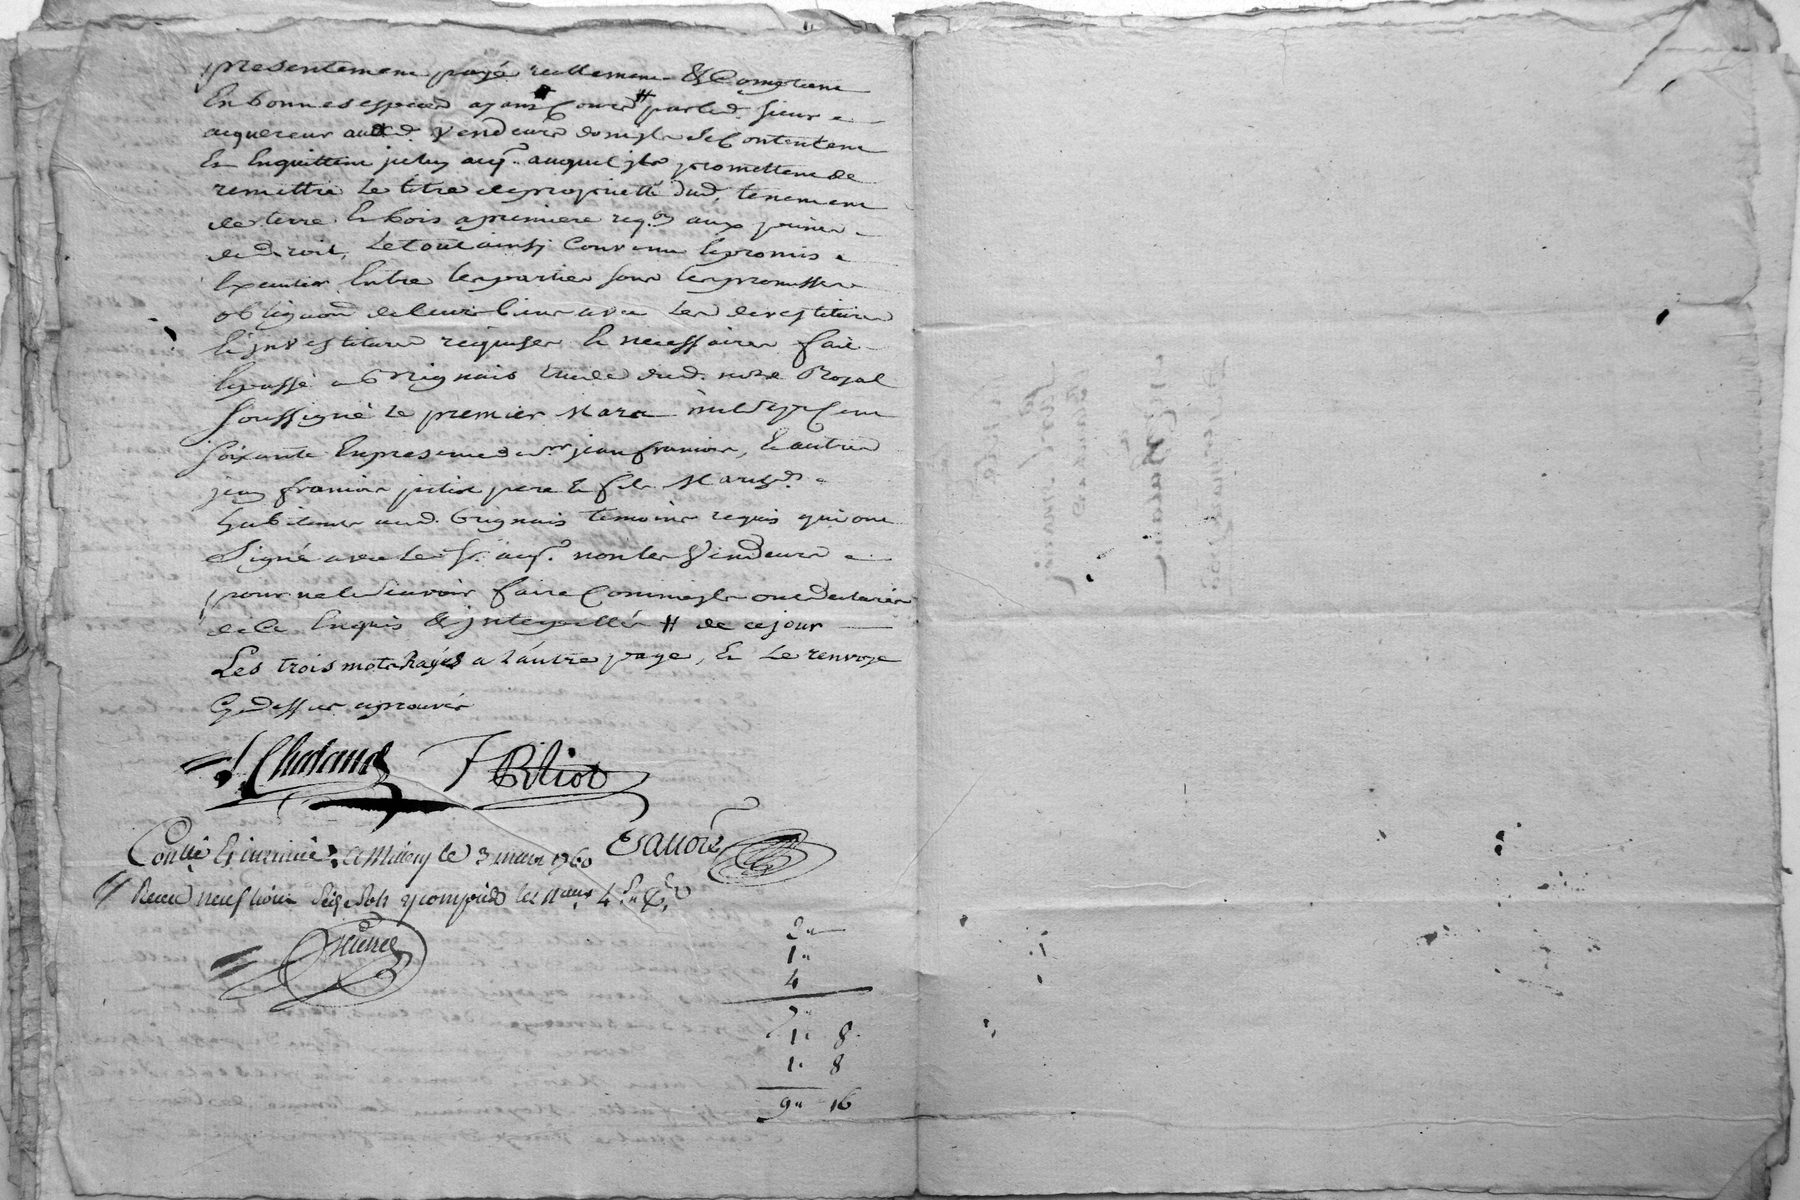 presentement payé reellement & Comptant
En bonnes especes ayant Cours # par led. sieur
acquereur aud. vendeurs dont ils se Contentent
Et Enquittent iceluy acqr. auquel ils promettent de
remettre Le titre de proprietté dud. tenement
de terre En bois a premiere reqon aux peines
de droit, Le tout ainsy Convenu Et promis
Executer Entre les parties sous les promesses
obligaons de leurs biens avec Les devestitures
Et jnvestitures requises Et necessaires fait
Et passé a Grignais Etude dud. notre Royal
soussigné le premier Mars mil sept Cent
soixante En presence de sr. jean francois, Et autre
jean francois pitiot pere Et fils March.ds
habitants aud. Grignais temoins requis qui ont
signé avec le Sr. acqr. non les Vendeurs
pour ne le scavoir faire Comme ils ont declaré
de Ce Enquis & jnterpellés # de ce jour
Les trois mots Rayés a l'autre page, Et Le renvoye
Cy dessus aprouvés
Chataud F Pitiot
Collé Et insinué a Millery le 3 mars 1760 Esauoie
Receu neuf livres seize sols y compris les
9 16
1 8
1 8
4